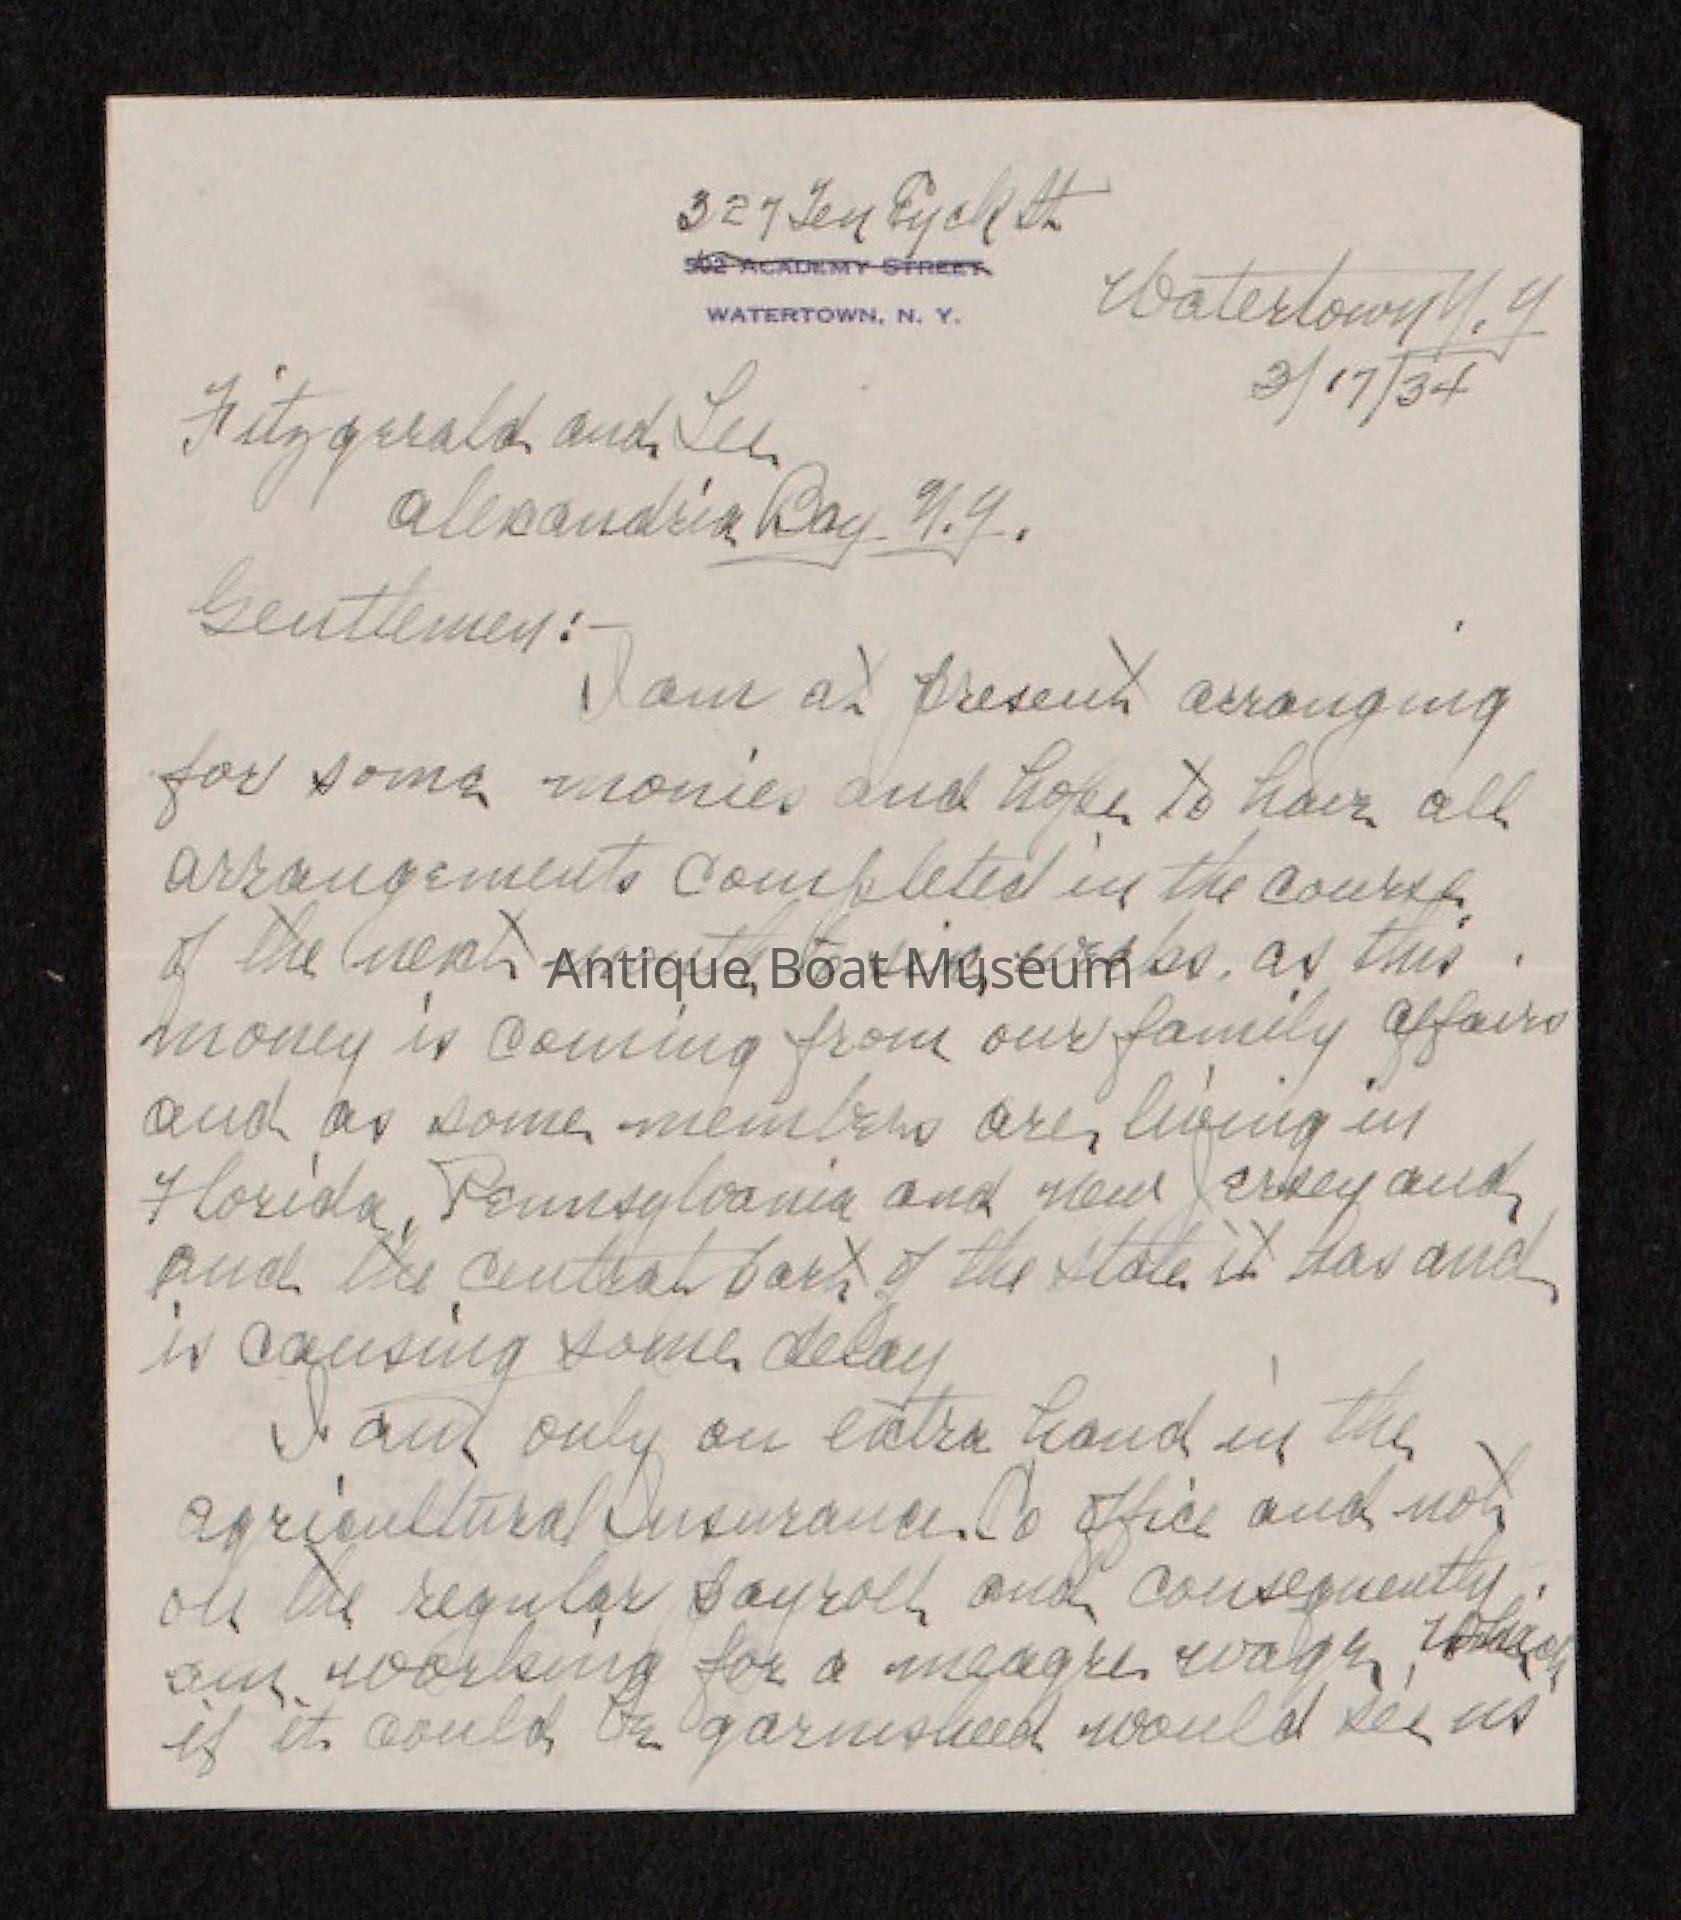 327 Ten Eyck St
502 ACADEMY STREET
WATERTOWN, N. Y.
Watertown N. Y
3/17/34
Fitzgerald and Lee
Alexandria Bay N.Y.
Gentlemen:-
I am at present arranging
for some monies and hope to have all
arrangements completed in the course
of the next month to six weeks. as this
money is coming from our family affairs
and as some members are living in
Florida, Pennsylvania and New Jersey and
and the central part of the state it has and
is causing some delay
I am only an extra hand in the
Agricultural Insurance Co office and not
on the regular payroll and consequently
am working for a meagre wage, which
if it could be garnisheed would see us
Antique Boat Museum